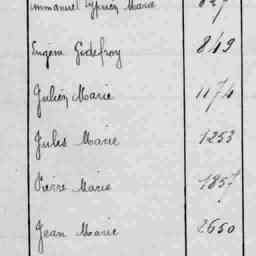 Emmanuel Cyprien Marie 827
Eugène Godefroy 849
Julien Marie 1174
Jules Marie 1253
Pierre Marie 1857
Jean Marie 2650